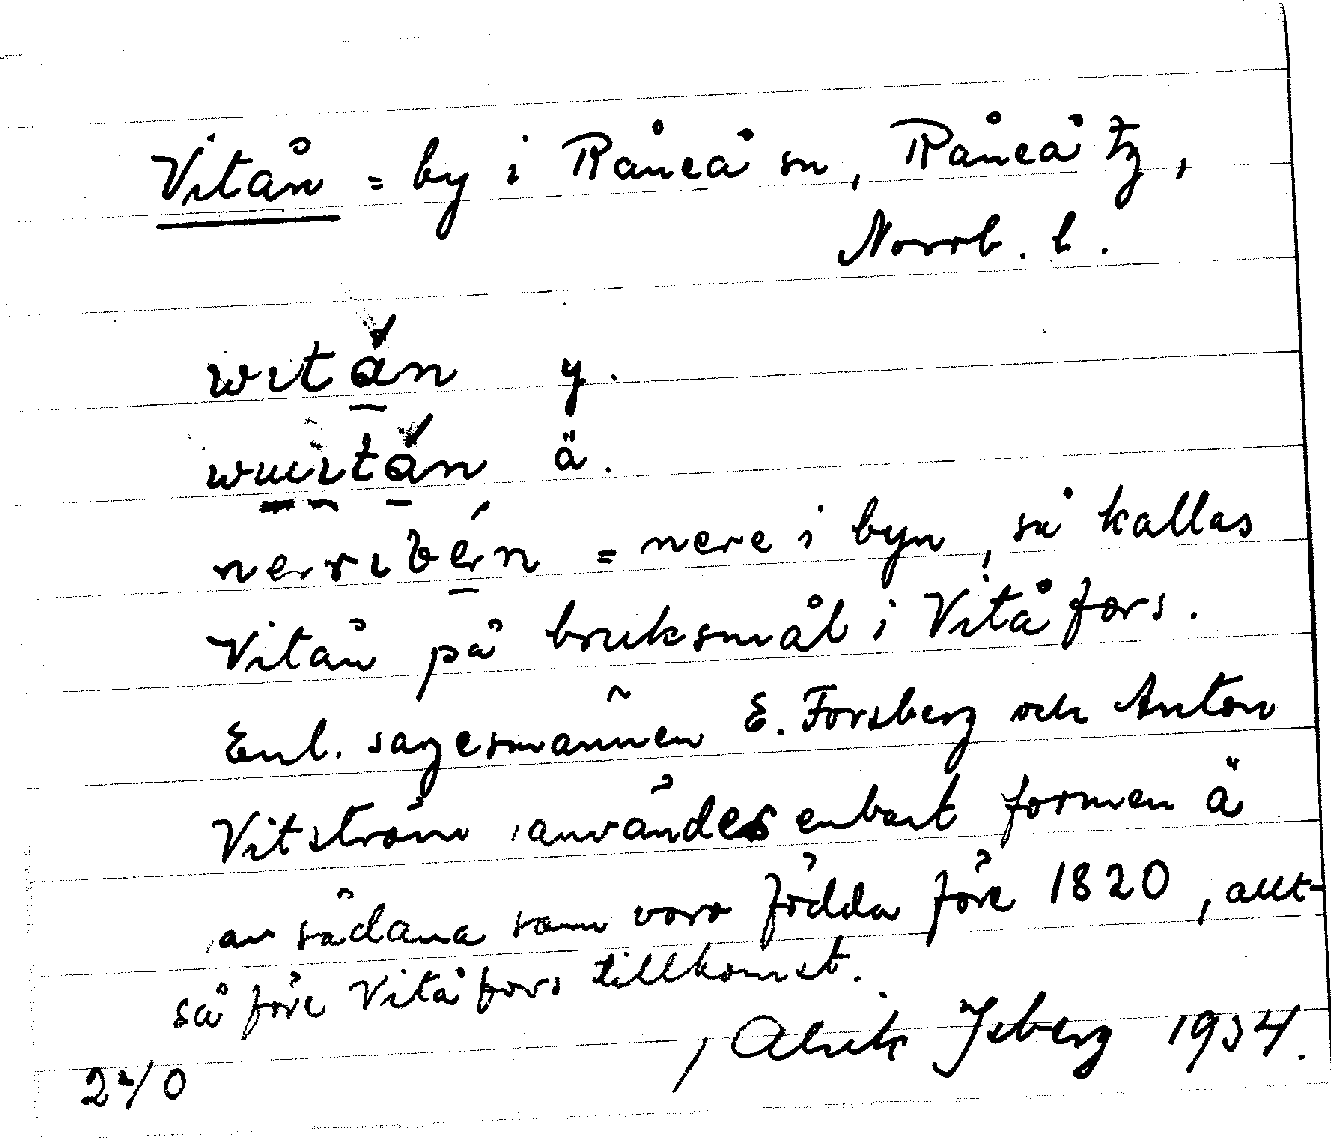 Vitån = by i Råneå sn, Råneå tg,
Norrb. l.
witån y.
wuitån ä.
nerribén = nere i byn, så kallas
Vitån på bruksmål i Vitåfors.
Enl. sagesmännen E. Forsberg och Anton
Vitström användes enbart formen ä
av sådana som voro födda före 1820, allt-
så före Vitåfors tillkomst.
Alrik Isberg 1934.